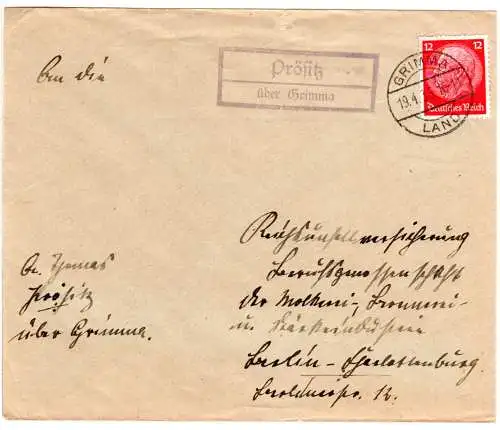 An die
Prösitz
über Grimma
GRIMMA
19.4.
LAND
12 12
Deutsches Reich
Reichsunfallversicherung
Berufsgenossenschaft
der Molkerei-, Brennerei-
u. Stärkeindustrie
Berlin-Charlottenburg.
str. 12.
Thomas
Prösitz
über Grimma.